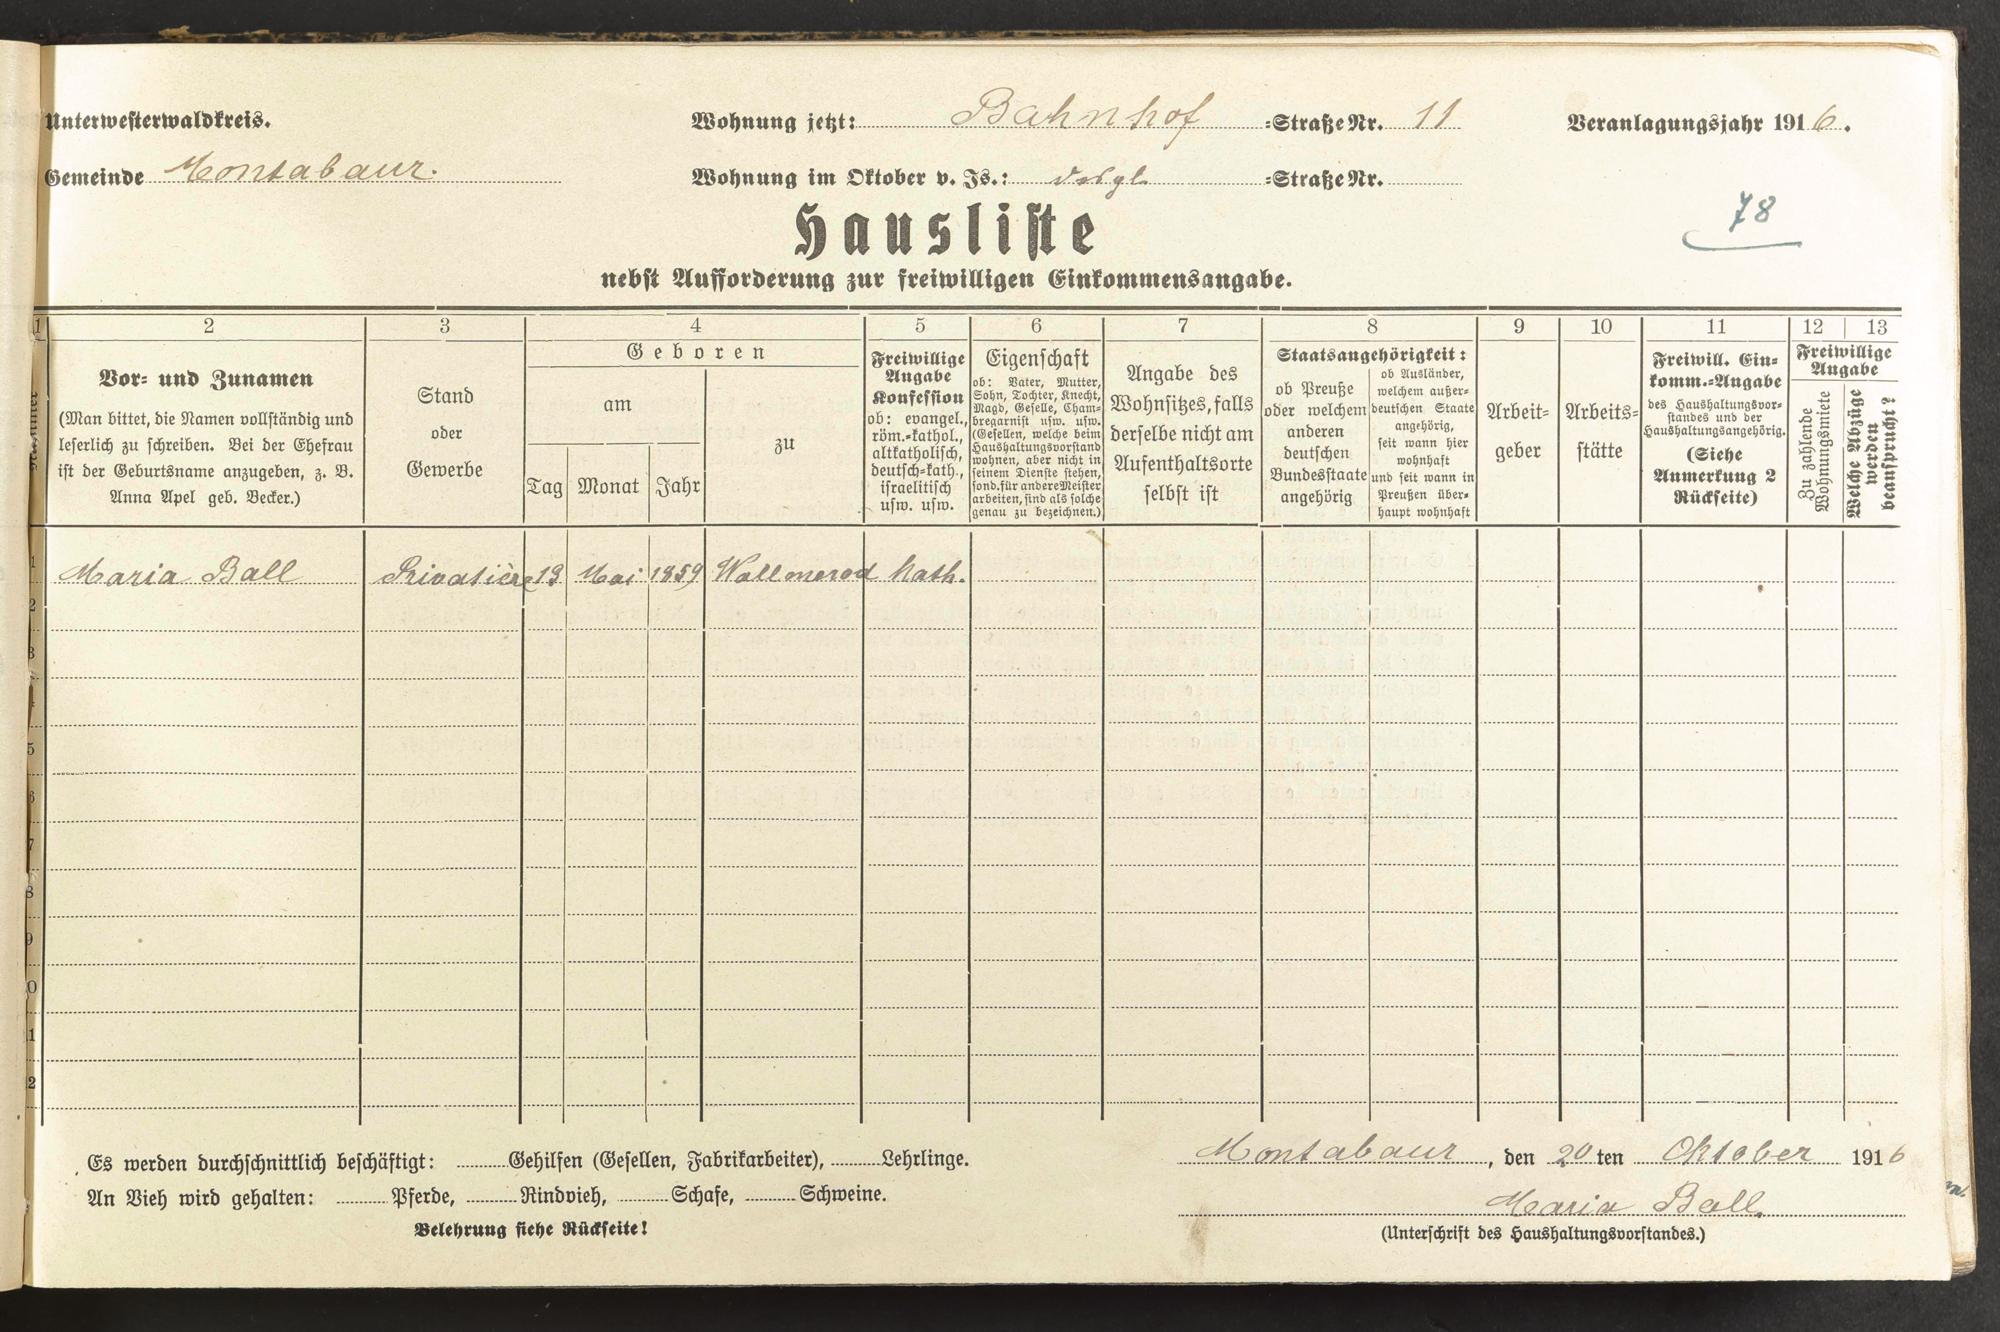 Unterwesterwaldkreis.
Wohnung jetzt: Bahnhof =Straße Nr. 11
Veranlagungsjahr 1916.
Gemeinde Montabaur.
Wohnung im Oktober v. Js.: desgl. =Straße Nr.
78
Hausliste
nebst Aufforderung zur freiwilligen Einkommensangabe.
1 2 3 4 5 6 7 8 9 10 11 12 13
Nummer
Vor= und Zunamen
(Man bittet, die Namen vollständig und
leserlich zu schreiben. Bei der Ehefrau
ist der Geburtsname anzugeben, z. B.
Anna Apel geb. Becker.)
Stand
oder
Gewerbe
Geboren
am
Tag Monat Jahr
zu
Freiwillige
Angabe
Konfession
ob: evangel.,
röm.=kathol.,
altkatholisch,
deutsch=kath.,
israelitisch
usw. usw.
Eigenschaft
ob: Vater, Mutter,
Sohn, Tochter, Knecht,
Magd, Geselle, Cham=
bregarnist usw. usw.
(Gesellen, welche beim
Haushaltungsvorstand
wohnen, aber nicht in
seinem Dienste stehen,
sond. für andere Meister
arbeiten, sind als solche
genau zu bezeichnen.)
Angabe des
Wohnsitzes, falls
derselbe nicht am
Aufenthaltsorte
selbst ist
Staatsangehörigkeit:
ob Preuße
oder welchem
anderen
deutschen
Bundesstaate
angehörig
ob Ausländer,
welchem außer=
deutschen Staate
angehörig,
seit wann hier
wohnhaft
und seit wann in
Preußen über=
haupt wohnhaft
Arbeit=
geber
Arbeits=
stätte
Freiwill. Ein=
komm.=Angabe
des Haushaltungsvor=
standes und der
Haushaltungsangehörig.
(Siehe
Anmerkung 2
Rückseite)
Freiwillige
Angabe
Zu zahlende
Wohnungsmiete
Welche Abzüge
werden
beansprucht?
1 Maria Ball Privatière 13 Mai 1859 Wallmerod kath.
2
3
4
5
6
7
8
9
10
11
12
Es werden durchschnittlich beschäftigt: Gehilfen (Gesellen, Fabrikarbeiter), Lehrlinge.
An Vieh wird gehalten: Pferde, Rindvieh, Schafe, Schweine.
Belehrung siehe Rückseite!
Montabaur, den 20ten Oktober 1916
Maria Ball.
(Unterschrift des Haushaltungsvorstandes.)